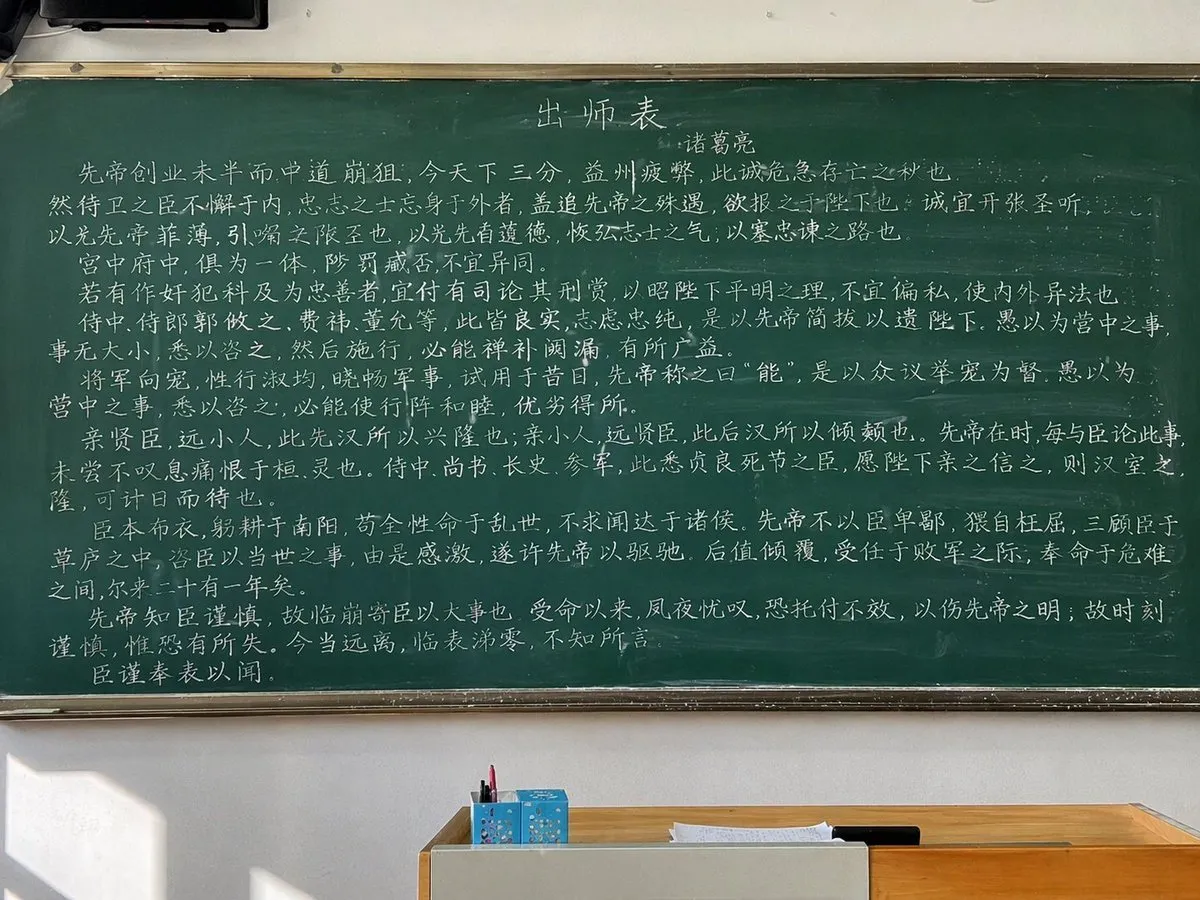 出师表
诸葛亮
先帝创业未半而中道崩狙,今天下三分,益州疲弊,此诚危急存亡之秋也
然侍卫之臣不懈于内,忠志之士忘身于外者,盖追先帝之殊遇,欲报之于陛下也。诚宜开张圣听,
以先帝菲薄,引喻也,以先德,恢弘志士之气;以塞忠谏之路也。
宫中府中,俱为一体,陟罚臧否,不宜异同。
若有作奸犯科及为忠善者,宜付有司论其刑赏,以昭陛下平明之理,不宜偏私,使内外异法也
侍中、侍郎郭攸之、费祎、董允等,此皆良实,志虑忠纯,是以先帝简拔以遗陛下。愚以为营中之事,
事无大小,悉以咨之,然后施行,必能裨补阙漏,有所广益。
将军向宠,性行淑均,晓畅军事,试用于昔日,先帝称之曰“能”,是以众议举宠为督。愚以为
营中之事,悉以咨之,必能使行阵和睦,优劣得所。
亲贤臣,远小人,此先汉所以兴隆也;亲小人,远贤臣,此后汉所以倾颓也。先帝在时,每与臣论此事,
未尝不叹息痛恨于桓、灵也。侍中、尚书、长史、参军,此悉贞良死节之臣,愿陛下亲之信之,则汉室之
隆,可计日而待也。
臣本布衣,躬耕于南阳,苟全性命于乱世,不求闻达于诸侯。先帝不以臣卑鄙,猥自枉屈,三顾臣于
草庐之中,咨臣以当世之事,由是感激,遂许先帝以驱驰。后值倾覆,受任于败军之际,奉命于危难
之间,尔来二十有一年矣。
先帝知臣谨慎,故临崩寄臣以大事也。受命以来,夙夜忧叹,恐托付不效,以伤先帝之明;故时刻
谨慎,惟恐有所失。今当远离,临表涕零,不知所言。
臣谨奉表以闻。